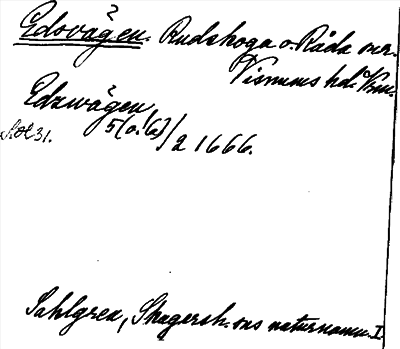 Edsvågen. Rudskoga o. Råda snr.
Visnums hd. Vrm.
Edzwågen,
5(o. 6)/2 1666.
31.
Sahlgren, Skagersh. sns naturnamn. I.